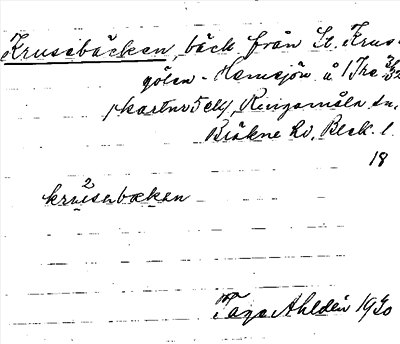 Krusabäcken, bäck från St. Krus-
gölen - Hemsjön å
kartnr 5 Ringamåla sn,
Bräkne hd, Blek. l.
18
krusabäken
2
Tage Ahldén 1930